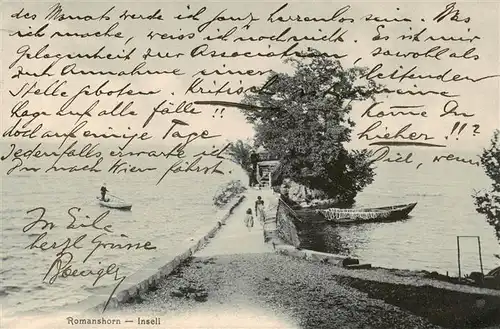 des Monats werde ich ganz herzenlos sein. Was
ich mache, weiss ich noch nicht. Es ist mir
Gelegenheit zur Association, sowohl als
zur Annahme einer leitenden
Stelle geboten. Kritisch meine
Lage auf alle Fälle!! Komme Du
doch auf einige Tage hierher!!?
Jedenfalls erwarte ich Dich, wenn
Du nach Wien fährst.
In Eile
herzl Grüsse
Romanshorn — Inseli